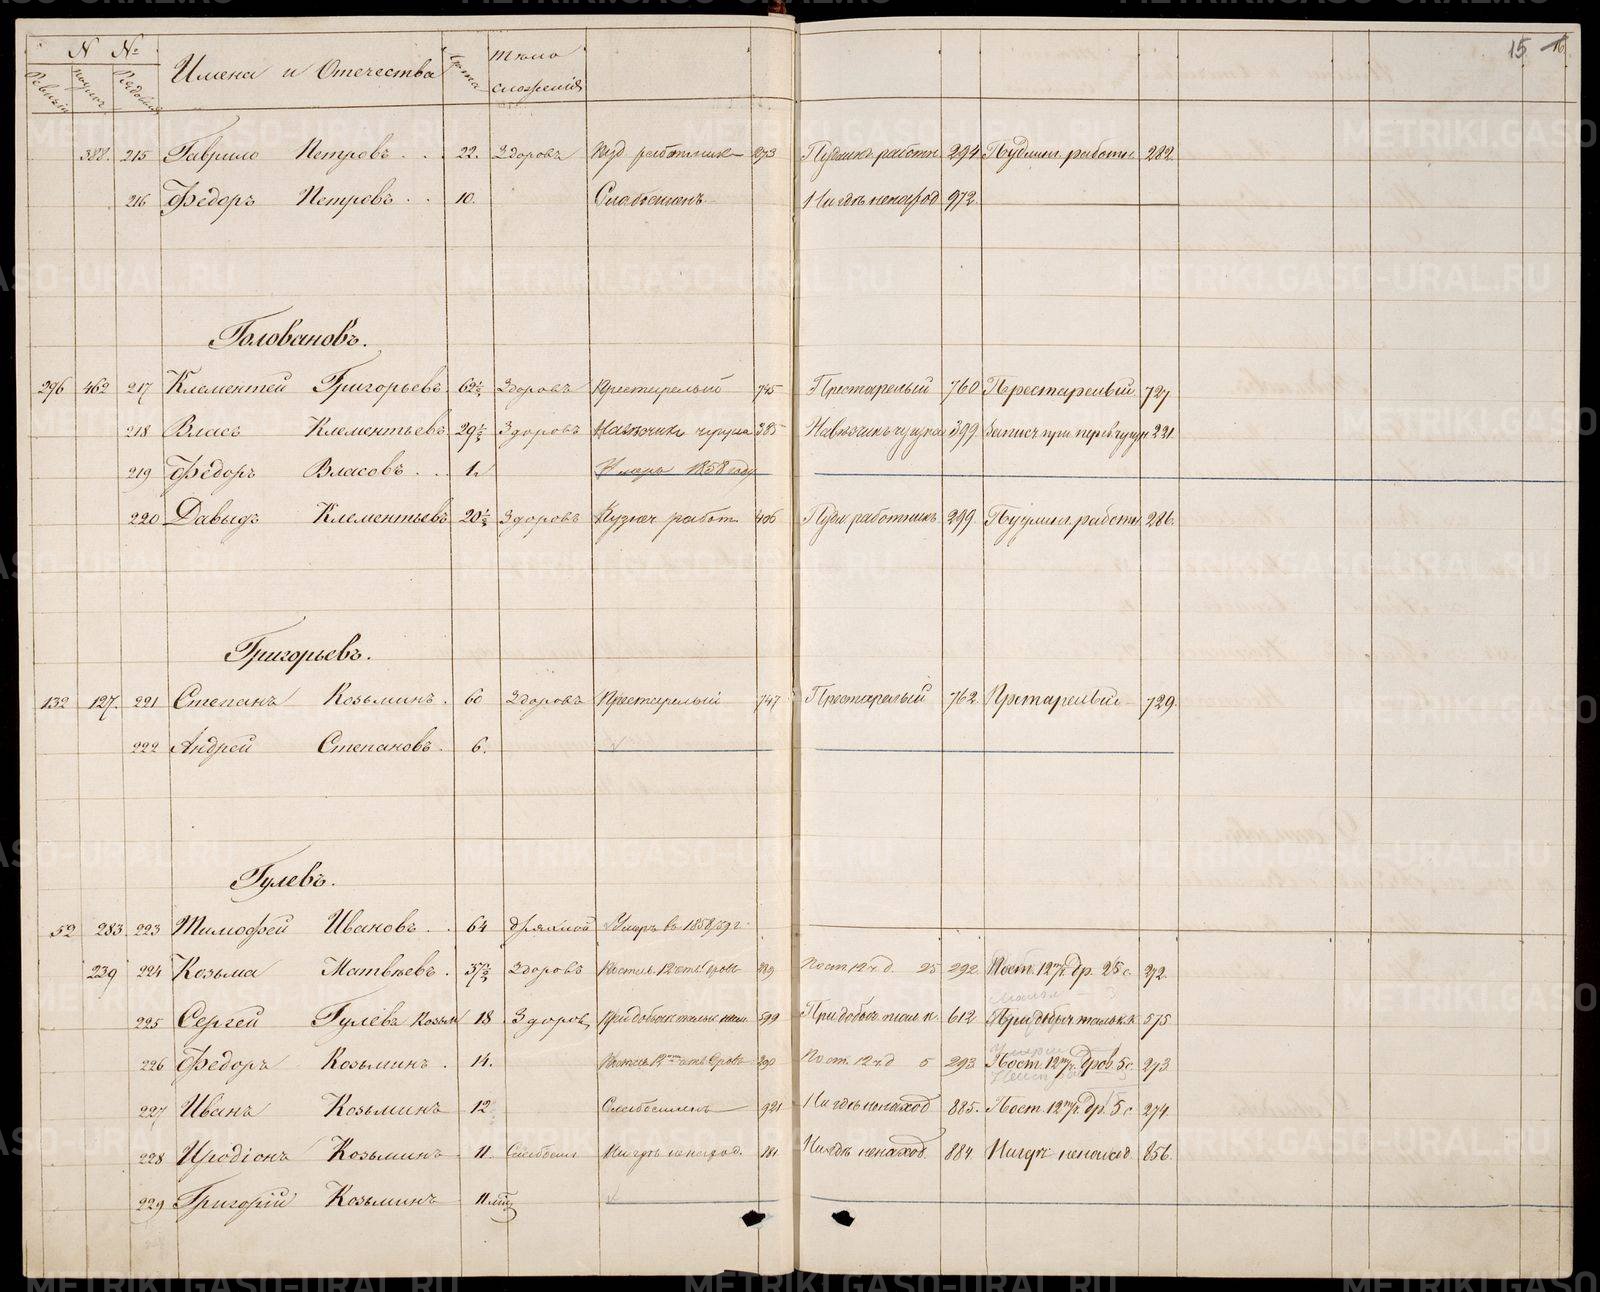 15
N №
Имена и Отечества
Лета
тѣло
сложенія
388. 215 Гаврило Петровъ 22. Здоровъ Пуд работник 273 Пудлинг работн 294 Пудлинг. работн 282
216 Федоръ Петровъ 10. Слабосиленъ Нигдѣ ненаход 972
Головановъ.
296 462 217 Клементей Григорьевъ 62½ Здоровъ Престарелый 745 Престарелый 760 Престарелый 727
218 Власъ Клементьевъ 29½ Здоровъ 385 399 221
219 Федоръ Власовъ 1. Умеръ 1858 году
220 Давыдъ Клементьевъ 20½ Здоровъ Кузнеч работ 406 Пудл работникъ 299 Пудлинг. работн 286
Григорьевъ.
132 127. 221 Степанъ Козьминъ 60 Здоровъ Престарелый 747 Престарелый 762 Прстарелый 729
222 Андрей Степановъ 6.
Гулевъ.
52 283 223 Тимофей Ивановъ 64 Дряхлой Умеръ въ 1858/59 г
239 224 Козьма Матвѣевъ 37½ Здоровъ 289 Пост 12 ч. д. 25 292 Пост. 12 ч. др. 25 с. 272
225 Сергей Гулевъ Козьм 18 Здоров 599 При добыч тальк 612 При добыч тальк 575
226 Федоръ Козьминъ 14. 290 Пост. 12 ч д 5 293 Пост. 12 ч. Дров. 5 с. 273
227 Иванъ Козьминъ 12 Слабосилен 921 Нигдѣ ненаход 885. Пост. 12 ч. др. 5 с. 274
228 Иродіонъ Козьминъ 11. Слабосил Нигдѣ ненаход. 181 Нигдѣ ненаход. 884 Нигдѣ ненаход 856
229 Григорій Козьминъ 11 мѣц
METRIKI.GASO-URAL.RU